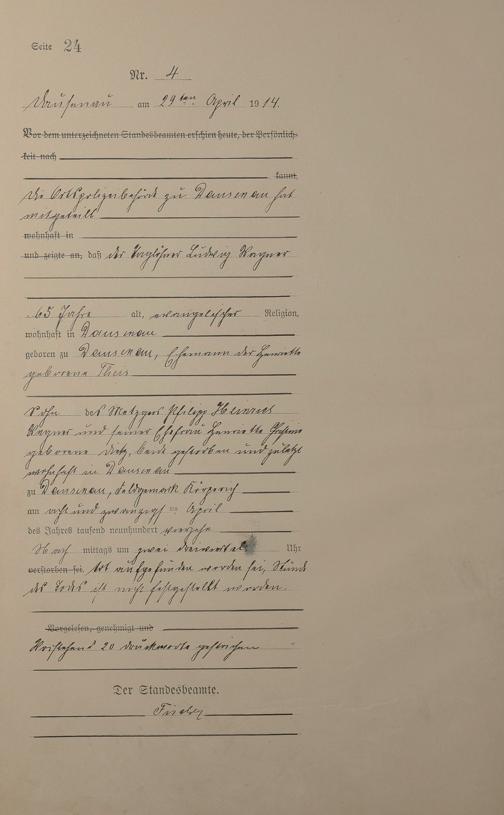 Seite 24
Nr. 4
Dausenau am 29ten April 1914.
Vor dem unterzeichneten Standesbeamten erschien heute, der Persönlich-
keit nach
kannt,
Die Ortspolizeibehörde zu Dausenau hat
mitgeteilt
wohnhaft in
und zeigte an, daß der Taglöhner Ludwig Wagner
65 Jahre alt, evangelischer Religion,
wohnhaft in Dausenau
geboren zu Dausenau, Ehemann der Henriette
geborene Theis
Sohn des Metzgers Philipp Heinrich
Wagner und seiner Ehefrau Henriette
geborene Dietz, beide gestorben und zuletzt
wohnhaft in Dausenau
zu Dausenau, Feldgemark
am acht und zwanzigsten April
des Jahres tausend neunhundert vierzehn
Nach mittags um zwei dreiviertel Uhr
verstorben sei. tot aufgefunden worden sei, Stunde
des Todes ist nicht festgestellt worden.
Vorgelesen, genehmigt und
Vorstehend 20 Druckworte gestrichen
Der Standesbeamte.